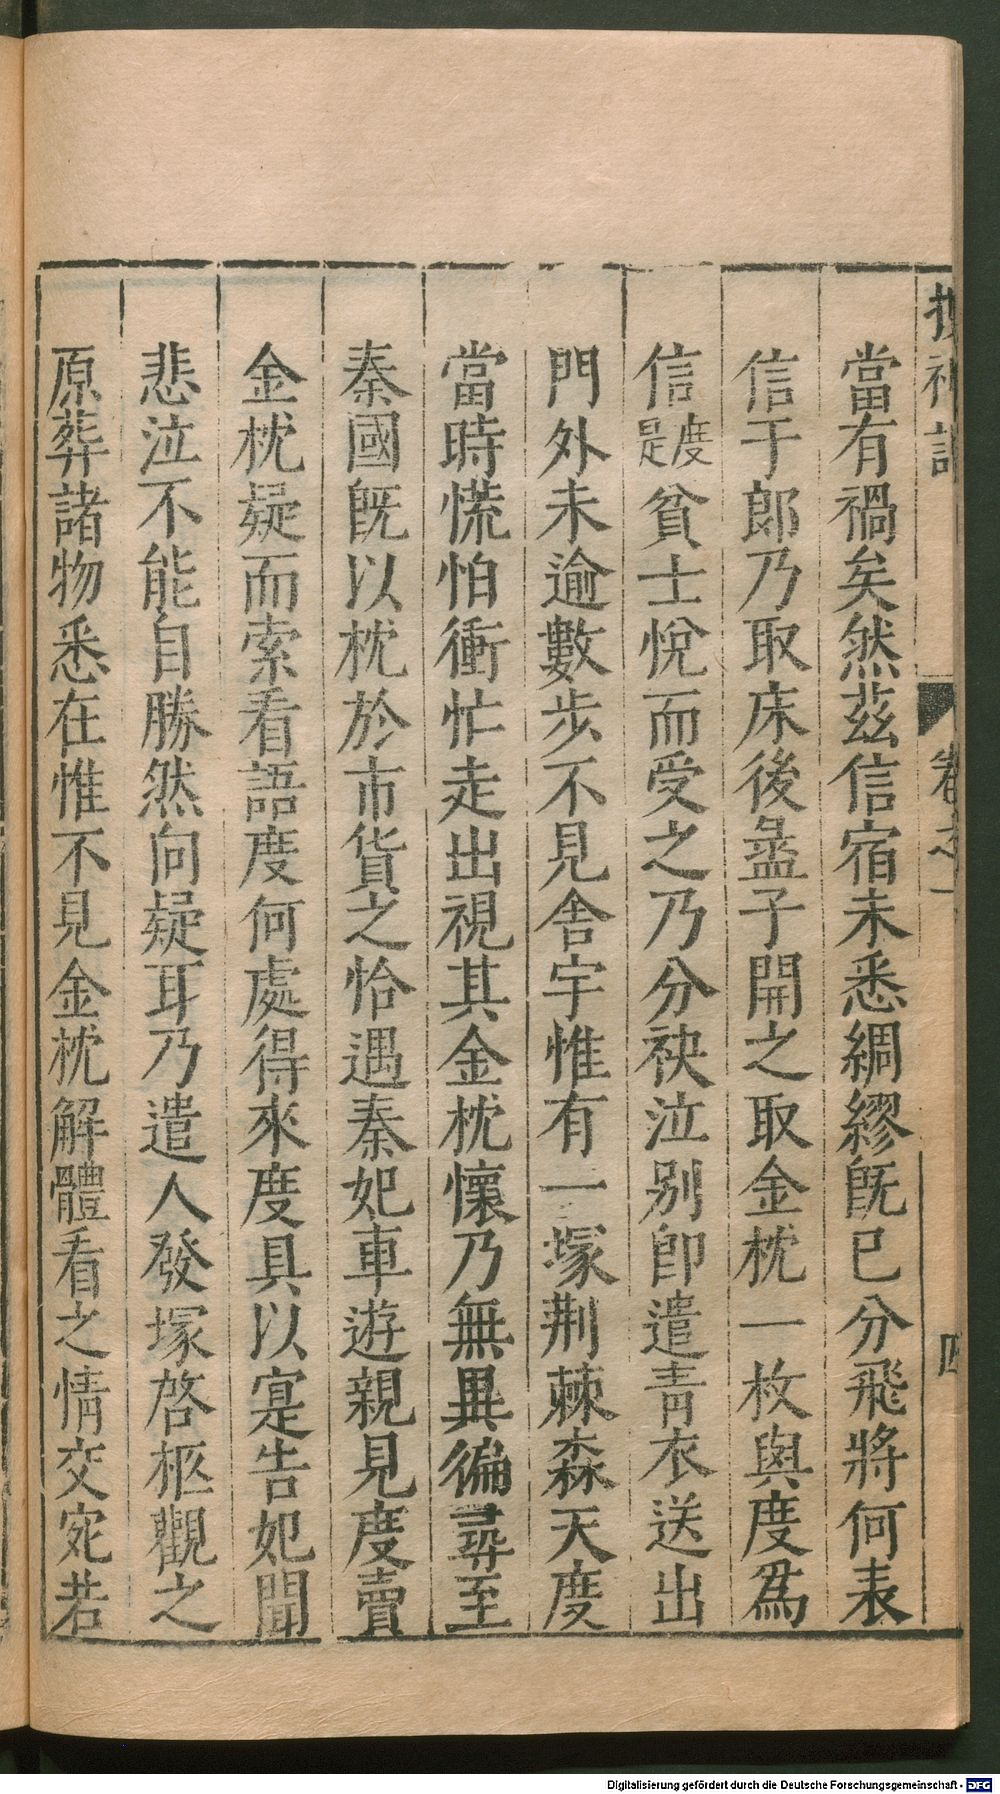 搜神記 卷之一 四
當有禍矣然茲信宿未悉綢繆旣已分飛將何表
信于郎乃取床後盝子開之取金枕一枚與度爲
信度是貧士悅而受之乃分袂泣别卽遣青衣送出
門外未逾數步不見舍宇惟有一塚荆棘森天度
當時慌怕衝忙走出視其金枕懷乃無異徧尋至
秦國旣以枕於市貨之恰遇秦妃車遊親見度賣
金枕疑而索看語度何處得來度具以寔告妃聞
悲泣不能自勝然向疑耳乃遣人發塚啓柩觀之
原葬諸物悉在惟不見金枕解體看之情交宛若
Digitalisierung gefördert durch die Deutsche Forschungsgemeinschaft - DFG